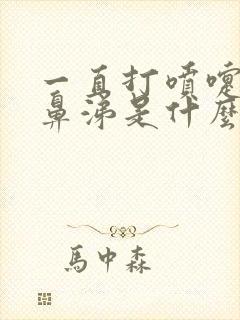 一直打噴嚏
鼻涕是什麼
馬中森